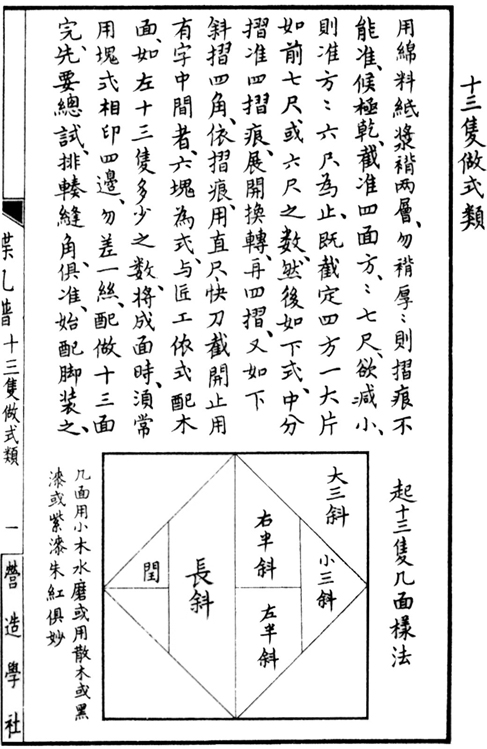 十三隻做式類
用綿料紙漿褙两層、勿褙厚〻則摺痕不
能准、候極乾、截准四面方〻七尺、欲减小、
則准方〻六尺為止、既截定四方一大片
如前七尺、或六尺之数、然後如下式、中分
摺准四摺痕、展開換轉、再四摺、又如下
斜摺四角、依摺痕、用直尺快刀截開止用
有字中間者、六塊為式、与匠工依式配木
面、如左十三隻多少之数、将成面時、湏常
用塊式相印四邊、勿差一絲、配做十三面
完先要總試、排輳縫角、俱准、始配脚装之、
起十三隻几面樣法
大三斜
小三斜
右半斜
左半斜
長斜
閏
几面用小木水磨或用散木或黑
漆或紫漆朱紅俱妙
蜨几譜
十三隻做式類
一
營造學社